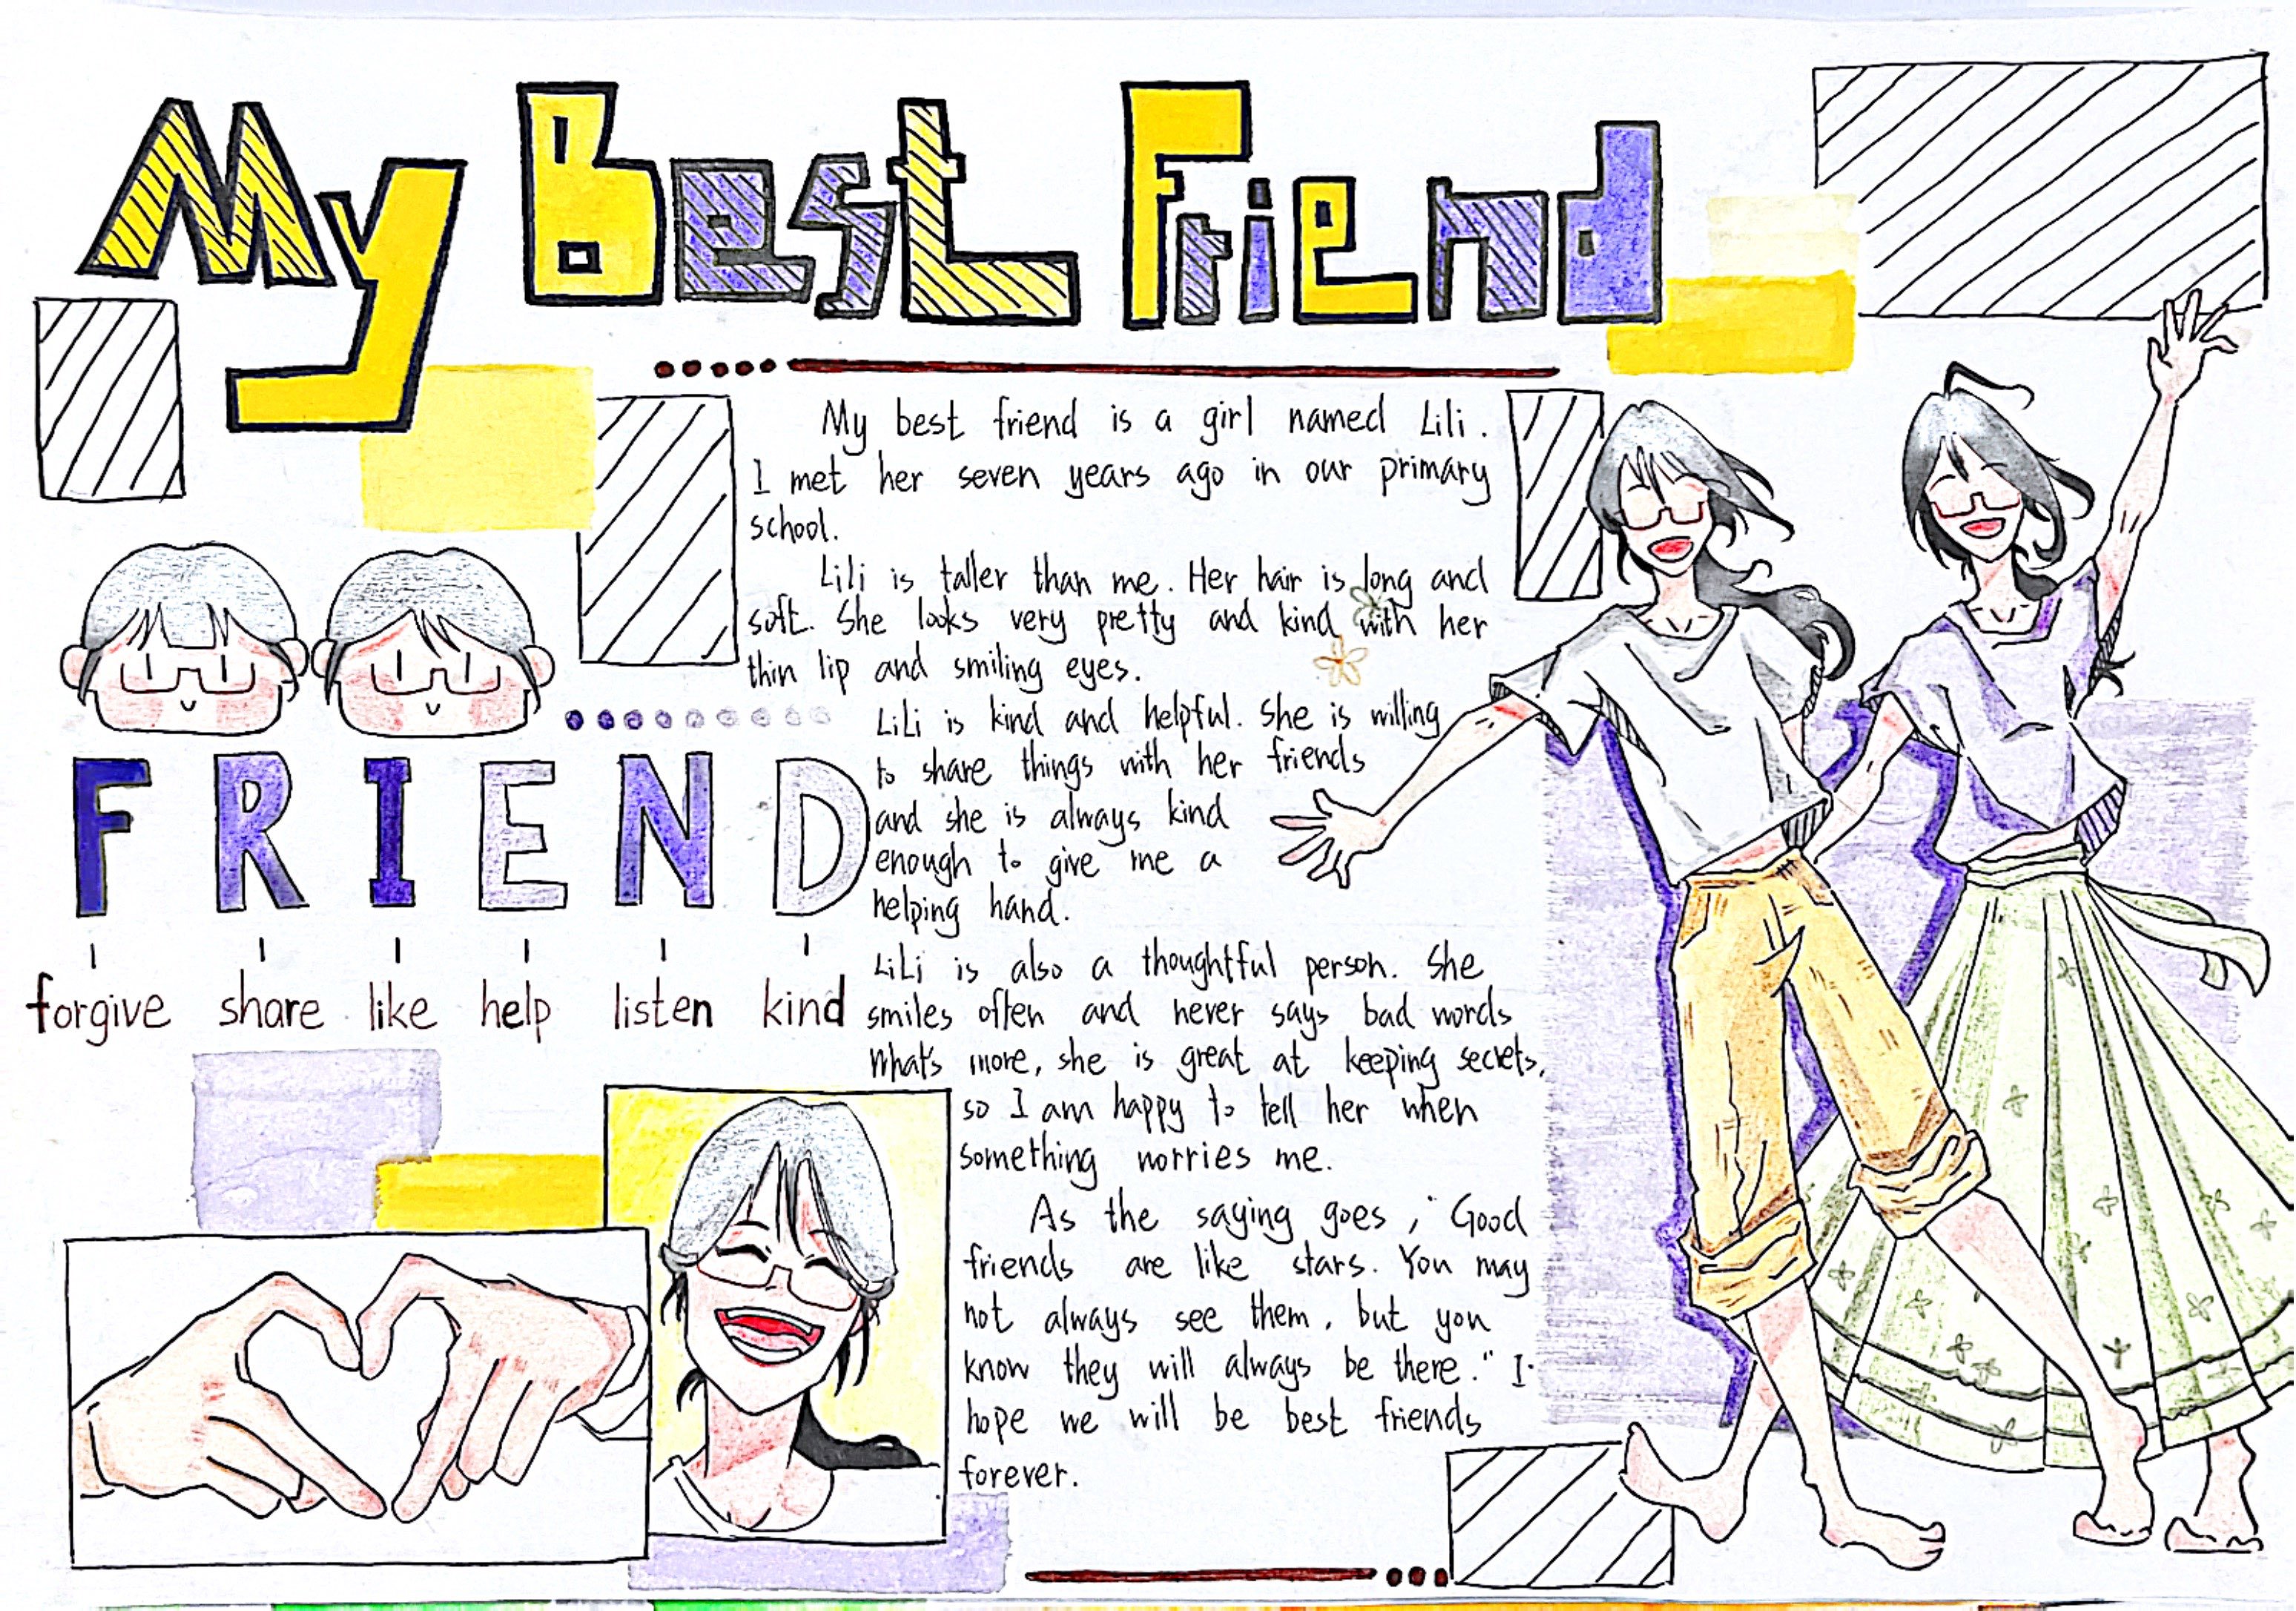 My Best Friend
My best friend is a girl named Lili.
I met her seven years ago in our primary
school.
Lili is taller than me. Her hair is long and
soft. She looks very pretty and kind with her
thin lip and smiling eyes.
LiLi is kind and helpful. She is willing
to share things with her friends
and she is always kind
enough to give me a
helping hand.
LiLi is also a thoughtful person. She
smiles often and never says bad words
What's more, she is great at keeping secrets,
so I am happy to tell her when
something worries me.
As the saying goes, "Good
friends are like stars. You may
not always see them, but you
know they will always be there." I
hope we will be best friends
forever.
FRIEND
forgive share like help listen kind